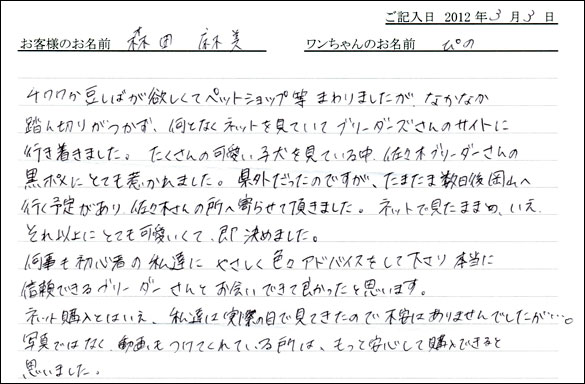 ご記入日 2012年3月3日
お客様のお名前 森田 麻美 ワンちゃんのお名前 ぴの
チワワか豆しばが欲しくてペットショップ等 まわりましたが、なかなか
踏ん切りがつかず、何となくネットを見ていて ブリーダーズさんのサイトに
行き着きました。 たくさんの可愛い子犬を見ている中、佐々木ブリーダーさんの
黒ポメにとても惹かれました。 県外だったのですが、たまたま数日後岡山へ
行く予定があり 佐々木さんの所へ寄らせて頂きました。 ネットで見たままの、いえ
それ以上にとても可愛いくて、即 決めました。
何事も初心者の私達に やさしく色々アドバイスをして下さり 本当に
信頼できるブリーダーさんと お会いできて良かったと思います。
ネット購入とはいえ、私達は実際の目で見てきたので不安はありませんでしたが…。
写真ではなく、動画もつけてくれている所は、もっと安心して購入できると
思いました。